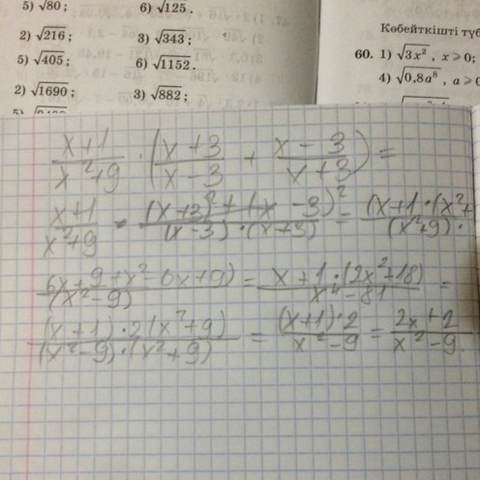 5) √80 ; 6) √125 .
2) √216 ; 3) √343 ;
5) √405 ; 6) √1152 .
2) √1690 ; 3) √882 ;
Көбейткішті түб
60. 1) √3x² , x ⩾ 0;
4) √0,8a⁸ , a ⩾ 0
(x+1)/(x²+9) · ((x+3)/(x-3) + (x-3)/(x+3)) =
(x+1)/(x²+9) · ((x+3)²+(x-3)²)/((x-3)·(x+3)) = (x+1·(x²+)/((x²+9)·
6x+9+x² 6x+9)/(x²-9) = x+1·(2x²+18)/x⁴-81 =
(x+1)·2(x²+9)/(x²-9)·(x²+9) = (x+1)·2/x²-9 = 2x+2/x²-9